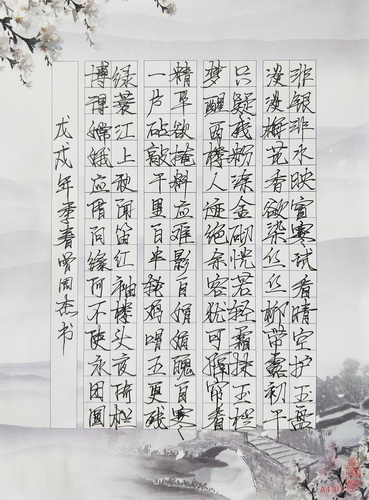 非银非水映窗寒试看晴空护玉盘
淡淡梅花香欲染丝丝柳带露初干
只疑残粉涂金砌恍若轻霜抹玉栏
梦醒西楼人迹绝余容犹可隔帘看
精华欲掩料应难影自娟娟魄自寒
一片砧敲千里白半轮鸡唱五更残
绿蓑江上秋闻笛红袖楼头夜倚栏
博得嫦娥应借问缘何不使永团圆
戊戌年季春曾国杰书